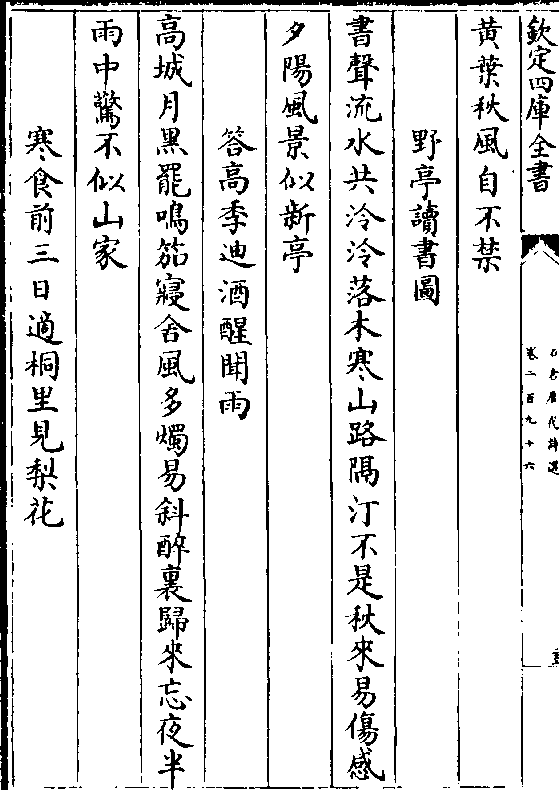 欽定四庫全書
石倉歷代詩選
卷二百九十六
黄葉秋風自不禁
野亭讀書圖
書聲流水共泠泠落木寒山路隔汀不是秋來易傷感
夕陽風景似新亭
答高季迪酒醒聞雨
高城月黒罷鳴笳寢舍風多燭易斜醉裏歸來忘夜半
雨中驚不似山家
寒食前三日適桐里見梨花